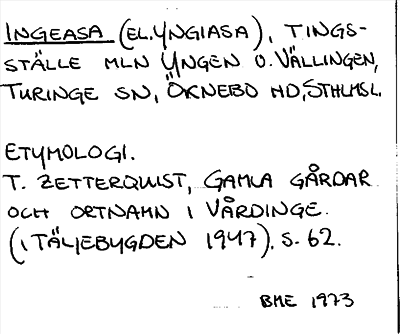 INGEASA (EL. YNGIASA), TINGS-
STÄLLE MLN YNGEN O. VÄLLINGEN,
TURINGE SN, ÖKNEBO HD, STHLMSL.
ETYMOLOGI.
T. ZETTERQVIST, GAMLA GÅRDAR
OCH ORTNAMN I VÅRDINGE.
(I TÄLJEBYGDEN 1947). S. 62.
BME 1973